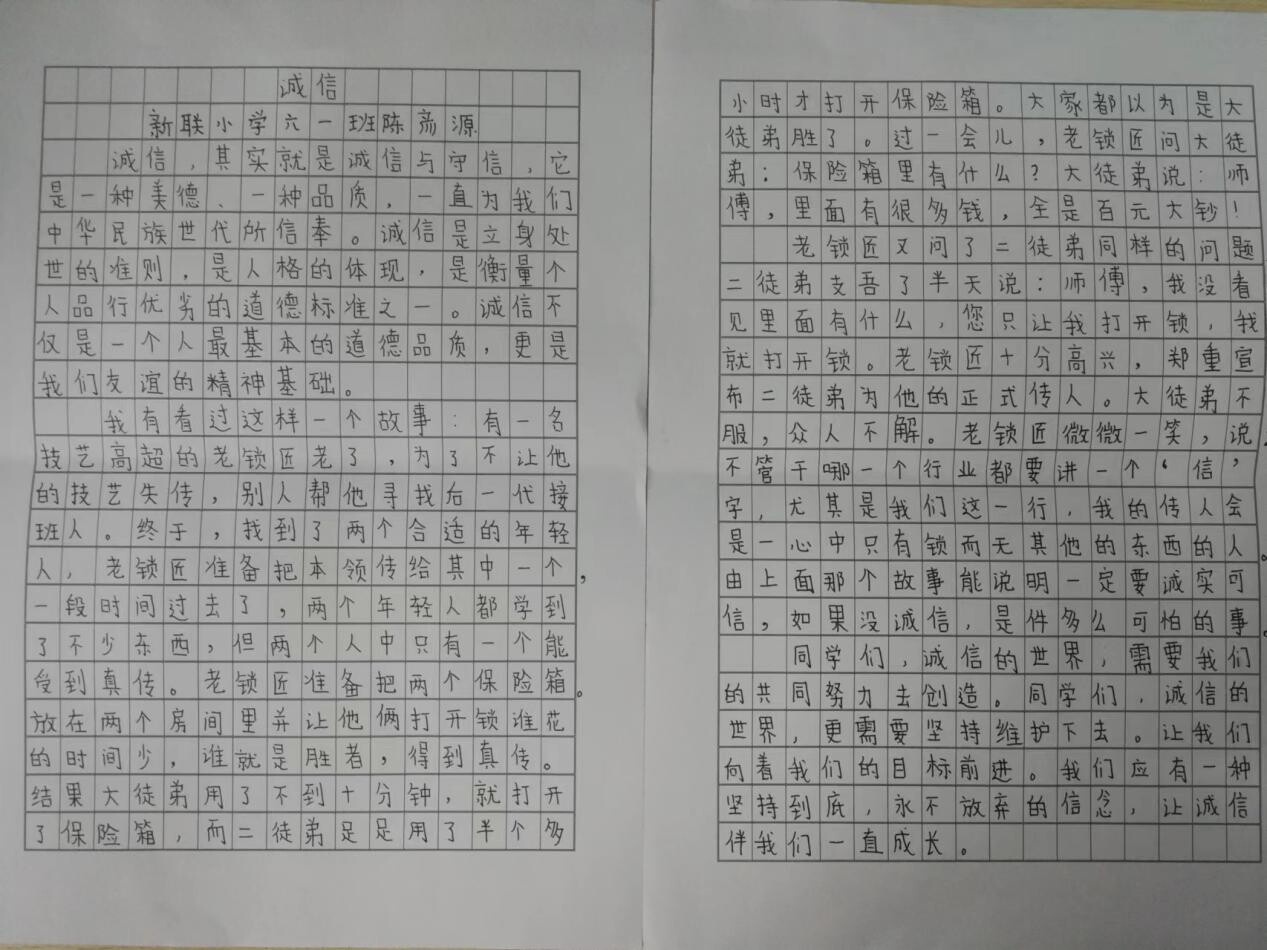 诚信
新联小学六一班陈彦源
诚信，其实就是诚信与守信，它
是一种美德、一种品质，一直为我们
中华民族世代所信奉。诚信是立身处
世的准则，是人格的体现，是衡量个
人品行优劣的道德标准之一。诚信不
仅是一个人最基本的道德品质，更是
我们友谊的精神基础。
我有看过这样一个故事：有一名
技艺高超的老锁匠老了，为了不让他
的技艺失传，别人帮他寻找后一代接
班人。终于，找到了两个合适的年轻
人，老锁匠准备把本领传给其中一个，
一段时间过去了，两个年轻人都学到
了不少东西，但两个人中只有一个能
受到真传。老锁匠准备把两个保险箱。
放在两个房间里并让他俩打开锁谁花
的时间少，谁就是胜者，得到真传。
结果大徒弟用了不到十分钟，就打开
了保险箱，而二徒弟足足用了半个多
小时才打开保险箱。大家都以为是大
徒弟胜了。过一会儿，老锁匠问大徒
弟：保险箱里有什么？大徒弟说：师
傅，里面有很多钱，全是百元大钞！
老锁匠又问了二徒弟同样的问题
二徒弟支吾了半天说：师傅，我没看
见里面有什么，您只让我打开锁，我
就打开锁。老锁匠十分高兴，郑重宣
布二徒弟为他的正式传人。大徒弟不
服，众人不解。老锁匠微微一笑，说，
不管干哪一个行业都要讲一个‘信’
字，尤其是我们这一行，我的传人会
是一心中只有锁而无其他的东西的人。
由上面那个故事能说明一定要诚实可
信，如果没诚信，是件多么可怕的事。
同学们，诚信的世界，需要我们
的共同努力去创造。同学们，诚信的
世界，更需要坚持维护下去。让我们
向着我们的目标前进。我们应有一种
坚持到底，永不放弃的信念，让诚信
伴我们一直成长。